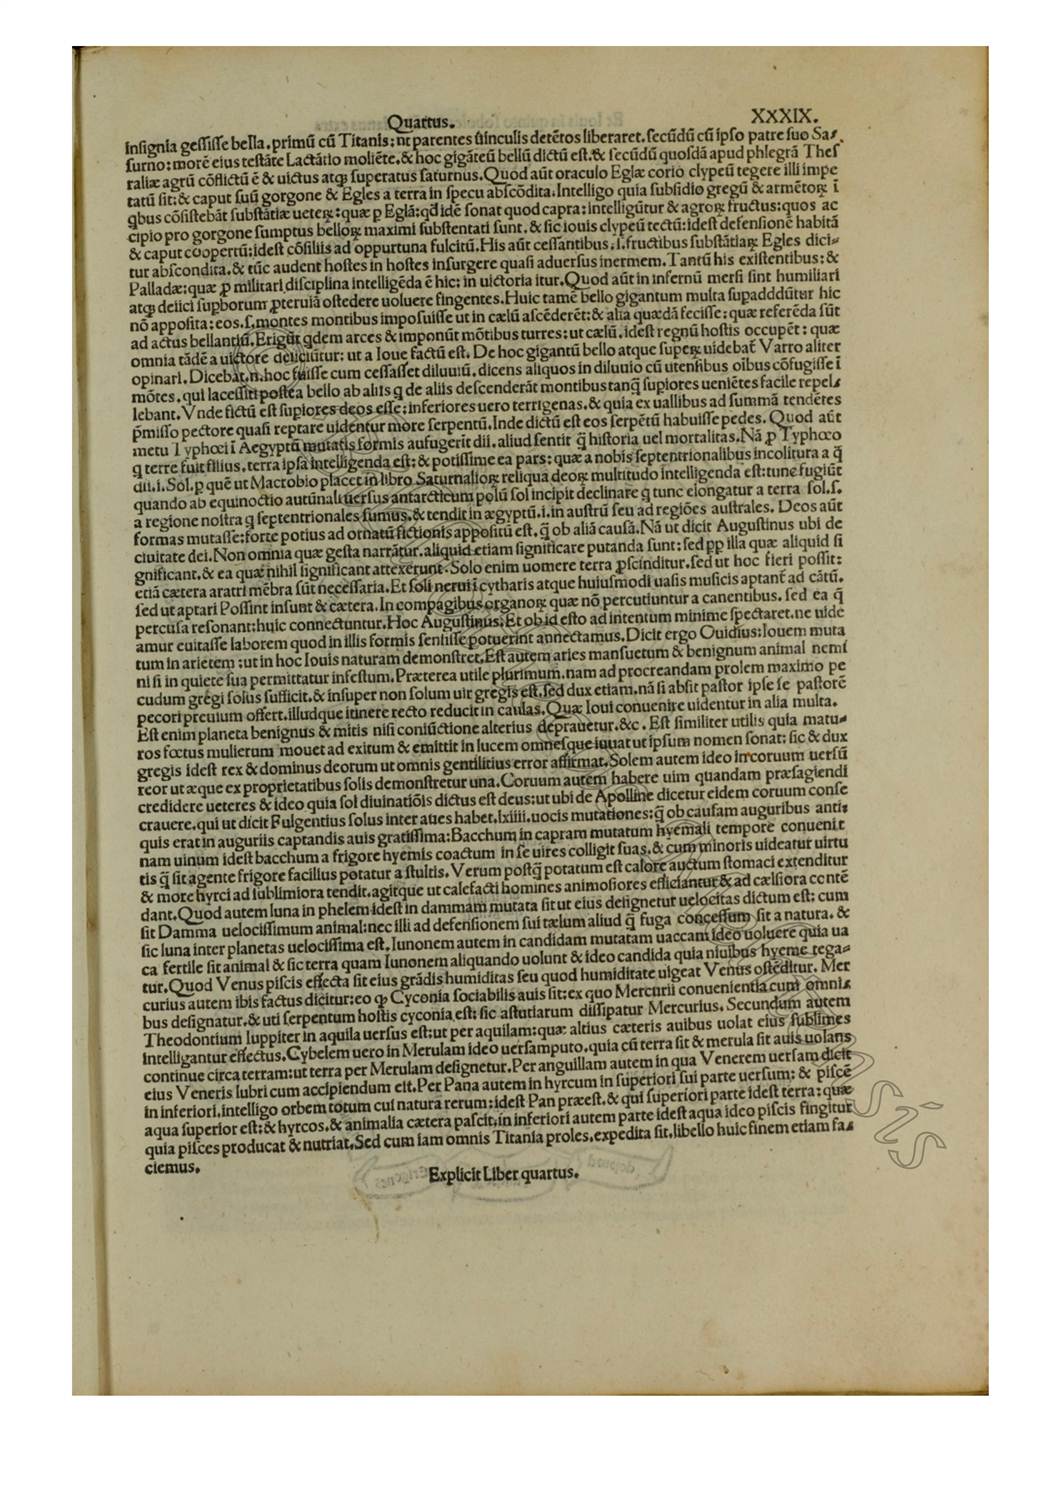 Quartus. XXXIX.
insignia gessisse bella. primũ cũ Titanis: ut parentes uinculis detẽtos liberaret. secũdũ cũ ipso patre suo Sa/
turno: morẽ eius testãte Lactãtio moliẽte. & hoc gigãteũ bellũ dictũ est. & secũdũ quosdã apud phlegrã Thes
raliæ agrũ cõflictũ ẽ & uictus atqꝫ superatus saturnus. Quod aũt oraculo Eglæ corio clypeũ tegere illi impe
tatũ sit: & caput suũ gorgone & Egles a terra in specu abscõdita. Intelligo quia subsidio gregũ & armẽtoꝝ ĩ
qbus cõsistebãt substãtiæ ueteꝝ: quæ p Eglã: qd idẽ sonat quod capra: intelligũtur & agroꝝ fructus: quos ac
cipio pro gorgone sumptus belloꝝ maximi substentati sunt. & sic iouis clypeũ tectũ: idest defensionẽ habitã
& caput coopertũ: idest cõsiliis ad oppurtuna fulcitũ. His aũt cessantibus. i. fructibus substãtiaꝝ Egles dici-
tur abscondita. & tũc audent hostes in hostes insurgere quasi aduersus inermem. Tantũ his existentibus: &
Palladæ: quæ ꝓ militari disciplina intelligẽda ẽ hic: in uictoria itur. Quod aũt in infernũ mersi sint humiliari
atqꝫ deiici supborum ꝓteruiã ostẽdere uoluere fingentes. Huic tamẽ bello gigantum multa supadddũtur hic
nõ apposita: eos. s. montes montibus imposuisse ut in cælũ ascẽderẽt: & alia quædã fecisse: quæ referẽda sũt
ad actus bellantiũ. Erigũt qdem arces & imponũt mõtibus turres: ut cælũ. idest regnũ hostis occupẽt: quæ
omnia tãdẽ a uictore deiiciũtur: ut a Ioue factũ est. De hoc gigantũ bello atque supeꝝ uidebat̃ Varro aliter
opinari. Dicebat. n. hoc fuisse cum cessasset diluuiũ. dicens aliquos in diluuio cũ utensibus oĩbus cõfugisse ĩ
mõtes. qui lacessiti postea bello ab aliis q de aliis descenderãt montibus tanq̃ supiores ueniẽtes facile repel/
lebant. Vnde fictũ est supiores deos esse: inferiores uero terrigenas. & quia ex uallibus ad summã tendẽtes
p̃misso pectore quasi reptare uidentur more serpentũ. Inde dictũ est eos serpẽtũ habuisse pedes. Quod aũt
metu Typhoei ĩ Aegyptũ mutatis formis aufugerit dii. aliud sentit q̃ historia uel mortalitas. Nã ꝓ Typhoeo
q terre fuit filius. terra ipsa intelligenda est: & potissime ea pars: quæ a nobis septentrionalibus incolitura a q̃
dii. i. Sol. p quẽ ut Macrobio placet in libro Saturnalioꝝ reliqua deoꝝ multitudo intelligenda est: tune fugiũt
quando ab equinoctio autũnali uersus antarcticum polũ sol incipit declinare q̃ tunc elongatur a terra sol. s.
a regione nostra q septentrionales sumus. & tendit in ægyptũ. i. in austrũ seu ad regiões australes. Deos aũt
formas mutasse: forte potius ad ornatũ fictionis appositũ est. q̃ ob aliã causã. Nã ut dicit Augustinus ubi de
ciuitate dei. Non omnia quæ gesta narrãtur. aliquid etiam significare putanda sunt: sed pp illa quæ aliquid si
gnificant. & ea quæ nihil significant attexerunt. Solo enim uomere terra ꝓscinditur. sed ut hoc fieri possit:
etiã cætera aratri mẽbra sũt necessaria. Et soli nerui ĩ cytharis atque huiusmodi uasis musicis aptant̃ ad cãtũ.
sed ut aptari Possint insunt & cætera. In compagibus organoꝝ quæ nõ percutiuntur a canentibus. sed ea q̃
percusa resonant: huic connectuntur. Hoc Augustinus. Et ob id esto ad intentum minime spectaret. ne uide
amur euitasse laborem quod in illis formis sensisse potuerint annectamus. Dicit ergo Ouidius: Iouem muta
tum in arietem: ut in hoc Iouis naturam demonstret. Est autem aries mansuetum & benignum animal nemĩ
ni si in quiete sua permittatur infestum. Præterea utile plurimum. nam ad procreandam prolem maximo pe
cudum gregi solus sufficit. & insuper non solum uir gregis est. sed dux etiam. nã si absit pastor ipse se pastorẽ
pecori preuium offert. illudque itinere recto reducit in caulas. Quæ Ioui conuenire uidentur in alia multa.
Est enim planeta benignus & mitis nisi coniũctione alterius deprauetur. &c. Est similiter utilis quia matu-
ros fœtus mulierum mouet ad exitum & emittit in lucem omnesque iuuat ut ipsum nomen sonat: sic & dux
gregis idest rex & dominus deorum ut omnis gentilitius error affirmat. Solem autem ideo in coruum uersũ
reor ut æque ex proprietatibus solis demonstretur una. Coruum autem habere uim quandam præsagiendi
credidere ueteres & ideo quia sol diuinatiõis dictus est deus: ut ubi de Apolline dicetur eidem coruum conse
crauere. qui ut dicit Fulgentius solus inter aues habet. lxiiii. uocis mutationes: q̃ ob causam auguribus anti-
quis erat in auguriis captandis auis gratissima: Bacchum in capram mutatum hyemali tempore conuenit
nam uinum idest bacchum a frigore hyemis coactum in se uires colligit suas. & cum minoris uideatur uirtu
tis q̃ sit agente frigore facilius potatur a stultis. Verum postq̃ potatum est calore auctum stomaci extenditur
& more hyrci ad sublimiora tendit. agitque ut calefacti homines animosiores efficiantur & ad cælsiora contẽ
dant. Quod autem luna in phelem idest in dammam mutata sit ut eius designetur uelocitas dictum est: cum
sit Damma uelocissimum animal: nec illi ad defensionem sui tælum aliud q̃ fuga concessum sit a natura. &
sic luna inter planetas uelocissima est. Iunonem autem in candidam mutatam uaccam ideo uoluere quia ua
ca fertile sit animal & sic terra quam Iunonem aliquando uolunt & ideo candida quia niuibus hyeme tega-
tur. Quod Venus piscis effecta sit eius grãdis humiditas seu quod humiditate uigeat Venus ostẽditur. Mer
curius autem ibis factus dicitur: eo qꝫ Cyconia sociabilis auis sit: ex quo Mercurii conuenientia cum omni-
bus designatur. & uti serpentum hostis cyconia est: sic astutiarum dissipatur Mercurius. Secundum autem
Theodontium Iuppiter in aquila uersus est: ut per aquilam: quæ altius cæteris auibus uolat eius sublimes
intelligantur effectus. Cybelem uero in Merulam ideo uersamputo. quia cũ terra sit & merula sit auis uolans
continue circa terram: ut terra per Merulam designetur. Per anguillam autem in qua Venerem uersam dicit
eius Veneris lubri cum accipiendum eit. Per Pana autem in hyrcum in superiori sui parte uersum: & piscẽ
in inferiori. intelligo orbem totum cui natura rerum: idest Pan præest. & qui superiori parte idest terra: quæ
aqua superior est: & hyrcos. & animalia cætera pascit. in inferiori autem parte idest aqua ideo piscis fingitur
quia pisces producat & nutriat. Sed cum iam omnis Titania proles. expedita sit. libello huic finem etiam fa/
ciemus.
Explicit Liber quartus.